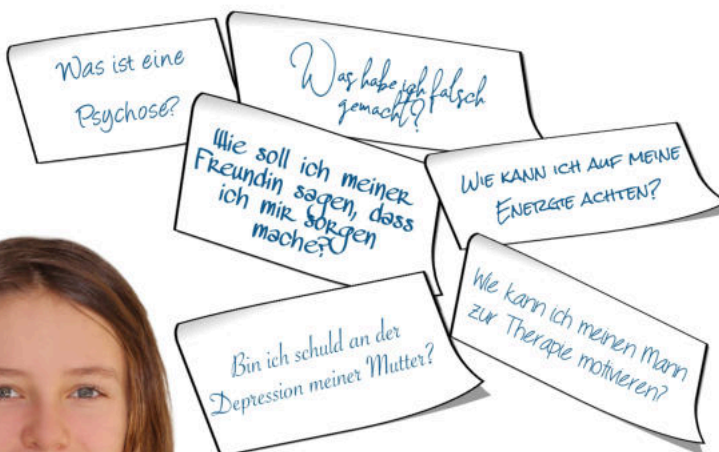 Was ist eine
Psychose?
Was habe ich falsch
gemacht?
Wie soll ich meiner
Freundin sagen, dass
ich mir Sorgen
mache?
WIE KANN ICH AUF MEINE
ENERGIE ACHTEN?
Bin ich schuld an der
Depression meiner Mutter?
Wie kann ich meinen Mann
zur Therapie motivieren?